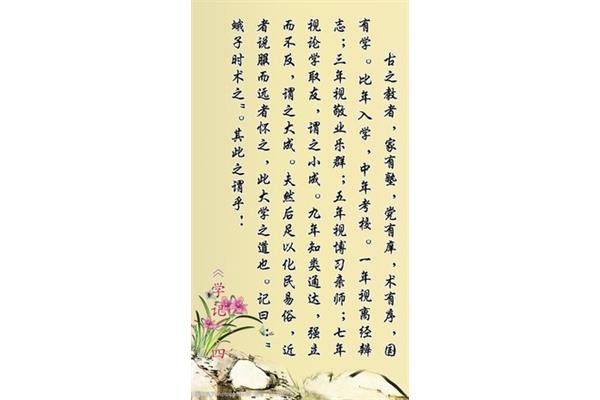 古之教者，家有塾，党有庠，术有序，国
有学。比年入学，中年考校。一年视离经辩
志；三年视敬业乐群；五年视博习亲师；七年
视论学取友，谓之小成。九年知类通达，强立
而不反，谓之大成。夫然后足以化民易俗，近
者说服而远者怀之，此大学之道也。记曰：“
蛾子时术之”。其此之谓乎！
《学记》四